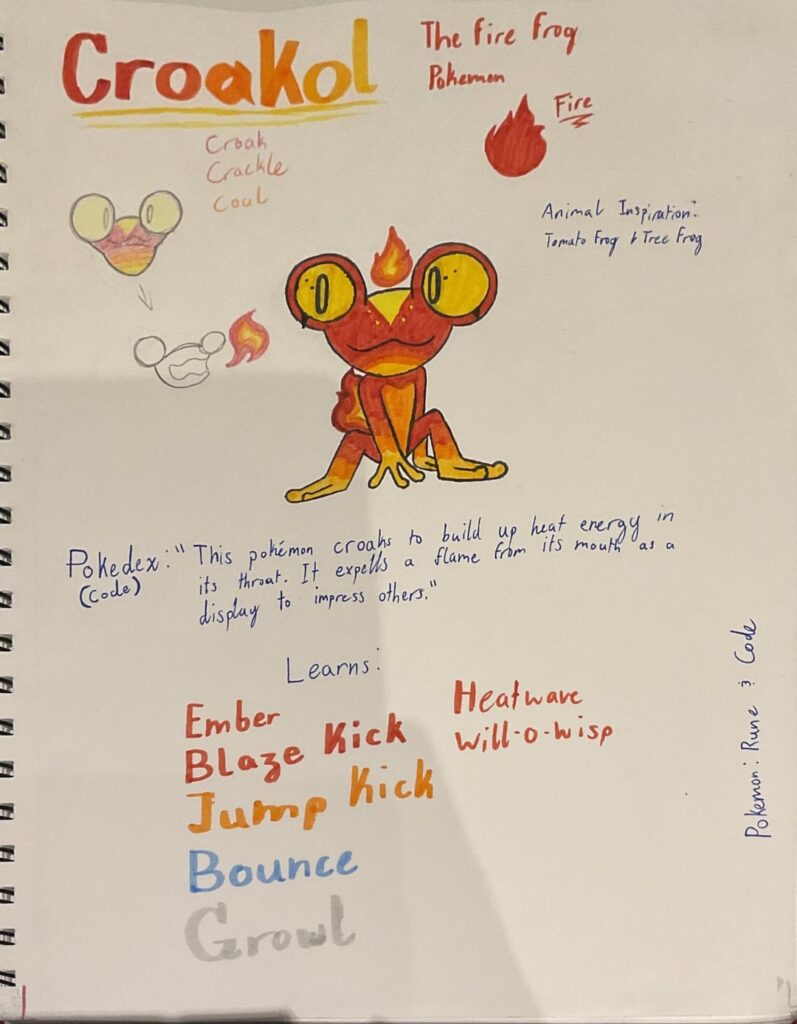 Croakol
The Fire Frog
Pokemon
Fire
Croak
Crackle
Coal
Animal Inspiration:
Tomato Frog & Tree Frog
Pokedex: "This pokémon croaks to build up heat energy in
(Code) its throat. It expells a flame from its mouth as a
display to impress others."
Learns:
Ember
Blaze Kick
Jump Kick
Bounce
Growl
Heatwave
Will-o-Wisp
Pokemon: Rune & Code